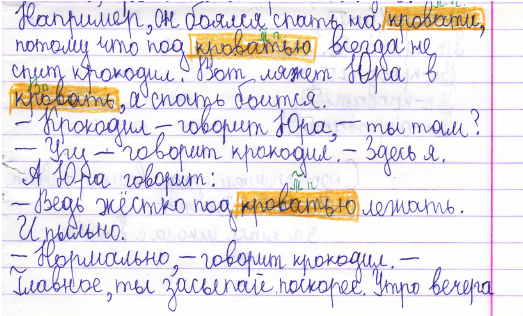 Например, он боялся спать на кровати,
потому что под кроватью всегда не
спит крокодил. Вот ляжет Юра в
кровать, а спать боится.
– Крокодил – говорит Юра, – ты там?
– Угу – говорит крокодил. – Здесь я.
А Юра говорит:
– Ведь жёстко под кроватью лежать.
И пыльно.
– Нормально, – говорит крокодил. –
Главное, ты засыпай поскорее. Утро вечера